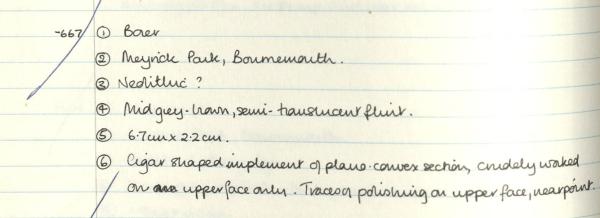 -667 ① Borer
② Meyrick Park, Bournemouth.
③ Neolithic ?
④ Mid grey-brown, semi-translucent flint.
⑤ 6.7cm x 2.2cm.
⑥ Cigar shaped implement of plano-convex section, crudely worked
on upper face only. Traces of polishing on upper face, near point.